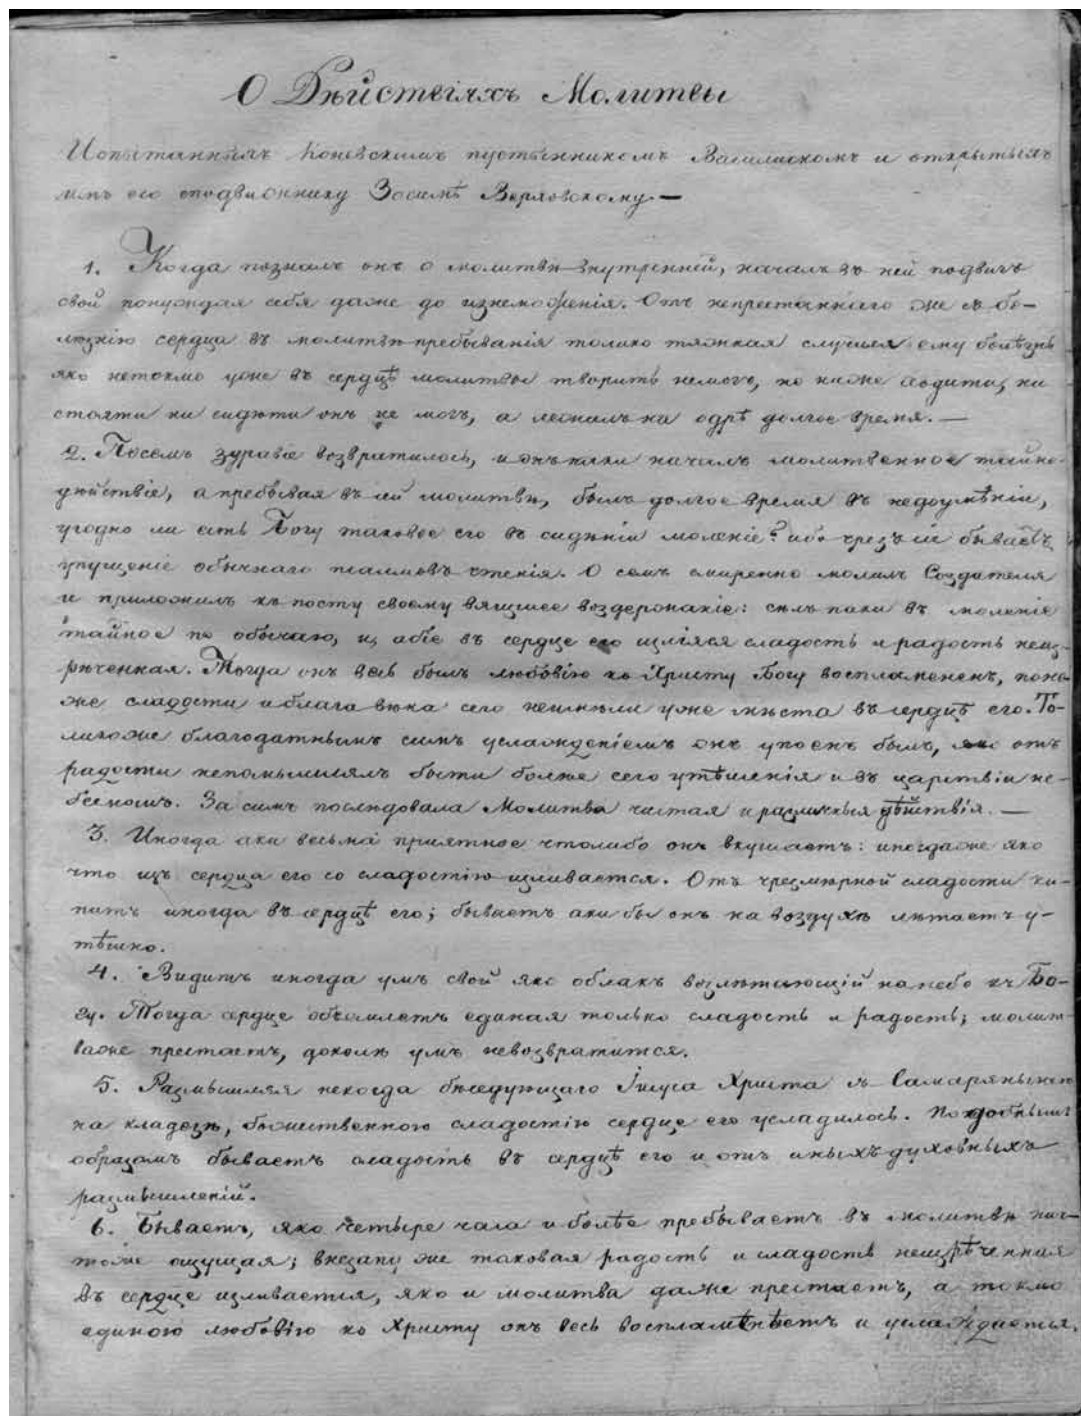 О Дѣйствіяхъ Молитвы
Испытанныхъ Коневскимъ пустынникомъ Василискомъ и открытыхъ
имъ его сподвижнику Зосимѣ Верховскому.—
1. Когда позналъ онъ о молитвѣ внутренней, началъ въ ней подвигъ
свой понуждая себя даже до изнеможенія. Отъ непрестаннаго же съ бо-
лѣзнію сердца въ молитвѣ пребыванія толико тяжкая случися ему болѣзнь
яко нетокмо уже въ сердцѣ молитвы творить немогъ, но ниже ходити, ни
стояти ни сидѣти онъ не могъ, а лежалъ на одрѣ долгое время. —
2. Посемъ здравіе возвратилось, и онъ паки началъ молитвенное тайно-
дѣйствіе, а пребывая въ сей молитвѣ, былъ долгое время въ недоумѣніи,
угодно ли есть Богу таковое его въ сидѣніи моленіе? ибо чрезъ сіе бываетъ
упущеніе обычнаго псалмовъ чтенія. О семъ смиренно молилъ Создателя
и приложилъ къ посту своему вящшее воздержаніе: сѣлъ паки въ моленіе
тайное по обычаю, и, абіе въ сердце его изліяся сладость и радость неиз-
рѣченная. Тогда онъ весь былъ любовію ко Христу Богу воспламененъ, поне-
же сладости и блага вѣка сего неимѣли уже мѣста въ сердцѣ его. То-
ликоже благодатнымъ симъ услажденіемъ онъ упоенъ былъ, яко отъ
радости непомышлялъ быти болѣе сего утѣшенія и въ царствіи не-
бесномъ. За симъ послѣдовала Молитва чистая и различныя дѣйствія. —
3. Иногда аки весьма приятное чтолибо онъ вкушаетъ: иногдаже яко
что изъ сердца его со сладостію изливается. Отъ чрезмѣрной сладости ки-
питъ иногда въ сердцѣ его; бываетъ аки бы онъ на воздухѣ лѣтаетъ у-
тѣшно.
4. Видитъ иногда умъ свой яко облакъ возлѣтающій на небо къ Бо-
гу. Тогда сердце объемлетъ единая только сладость и радость; молит-
важе престаетъ, доколѣ умъ невозвратится.
5. Размышляя некогда бѣседующаго Іисуса Христа съ Самаряныною
на кладезѣ, божественною сладостію сердце его усладилось. Подобнымъ
образомъ бываетъ сладость въ сердцѣ его и отъ иныхъ духовныхъ
размышленій.
6. Бываетъ, яко четыре часа и болѣе пребываетъ въ молитвѣ нич-
тоже ощущая; внезапу же таковая радость и сладость неизрѣченная
въ сердце изливается, яко и молитва даже престаетъ, а токмо
единою любовію ко Христу онъ весь воспламѣнѣетъ и услаждается.